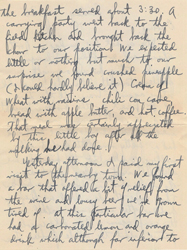 the breakfast served about 3:30. A
carrying party went back to the
field kitchen and brought back the
chow to our position. We expected
little or nothing but much to our
surprise we found crushed pineapple
(I could hardly believe it) Cream of
Wheat with raisins, chili con carne,
bread with apple butter, and hot coffee.
That was all entirely
by this little
nothing we had hoped.
Yesterday afternoon I paid my first
visit to the nearby town. We found
a bar that offered a bit of relief from
the wine and lousy beer we've grown
tired of. at this particular bar we
had of carbonated lemon and orange
drink which although far inferior to